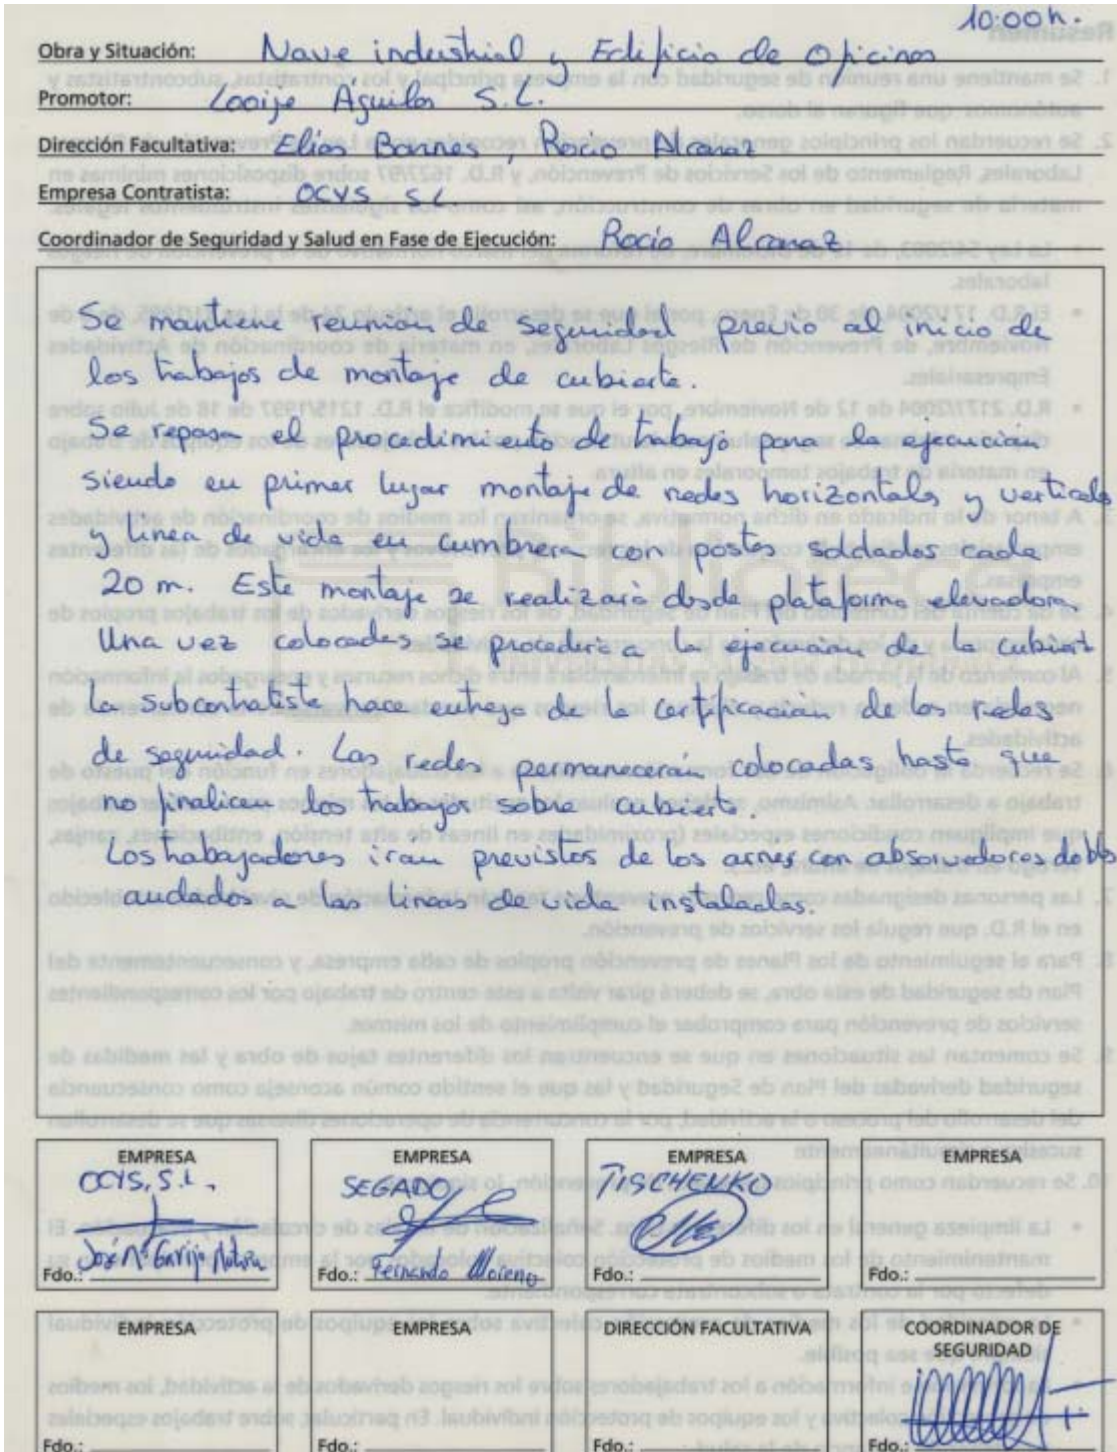 10:00h.
Obra y Situación: Nave industrial y Edificio de Oficinas
Promotor: Looije Águilas S.L.
Dirección Facultativa: Elias Barnes, Rocio Alcaraz
Empresa Contratista: OCYS SL
Coordinador de Seguridad y Salud en Fase de Ejecución: Rocio Alcaraz
Se mantiene reunión de seguridad previo al inicio de
los trabajos de montaje de cubierta.
Se repasa el procedimiento de trabajo para la ejecución
siendo en primer lugar montaje de redes horizontales y verticales
y linea de vida en cumbrera con postes soldados cada
20 m. Este montaje se realizará desde plataforma elevadora.
Una vez colocadas se procederá a la ejecución de la cubierta
La subcontratista hace entrega de la certificación de las redes
de seguridad. Las redes permanecerán colocadas hasta que
no finalicen los trabajos sobre cubierta.
Los trabajadores irán previstos de los arnés con absorvedores dobles
anclados a las lineas de vida instaladas.
EMPRESA EMPRESA EMPRESA EMPRESA
OCYS, S.L. SEGADO TISCHENKO
Fdo.: José Mª Garrijo Fdo.: Fernando Moreno Fdo.: Fdo.:
EMPRESA EMPRESA DIRECCIÓN FACULTATIVA COORDINADOR DE
SEGURIDAD
Fdo.: Fdo.: Fdo.: Fdo.: